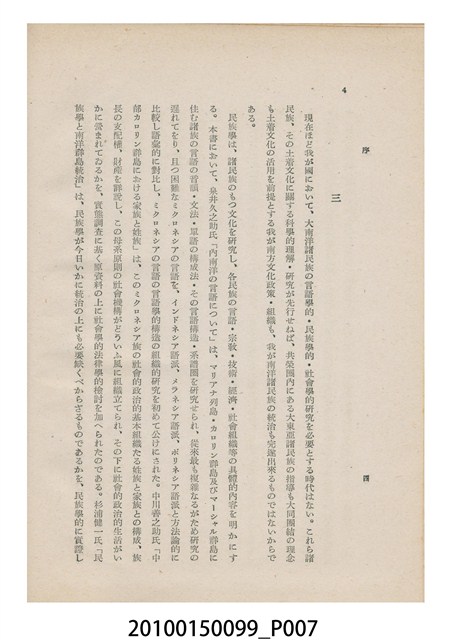 4
序
四
三
現在ほど我が國において、大南洋諸民族の言語學的・民族學的・社會學的研究を必要とする時代はない。これら諸
民族、その土着文化に關する科學的理解・研究が先行せねば、共榮圈內にある大東亞諸民族の指導も大同團結の理念
も土着文化の活用を前提とする我が南方文化政策・組織も、我が南洋諸民族の統治も完遂出來るものではないからで
ある。
民族學は、諸民族のもつ文化を研究し、各民族の言語・宗教・技術・經濟・社會組織等の具體的內容を明かにす
る。本書において、泉井久之助氏「內南洋の言語について」は、マリアナ列島・カロリン群島及びマーシャル群島に
住む諸族の言語の音韻・文法・單語の構成法・その言語構造・系譜關を研究せられ、從來最も複雜なるがため研究の
遲れてをり、且つ困難なミクロネシアの言語を、インドネシア語派、メラネシア語派、ポリネシア語派と方法論的に
比較し語彙的に對比し、ミクロネシアの言語の言語學的構造の組織的研究を初めて公けにされた。中川善之助氏「中
部カロリン群島における家族と姓族」は、このミクロネシア族の社會的政治的基本組織たる姓族と家族との構成、族
長の支配權、財產を詳說し、この母系原則の社會機構がどういふ風に組織立てられ、その下に社會的政治的生活がい
かに營まれてゐるかを、實態調査に基く原資料の上に社會學的法律學的檢討を加へられたのである。杉浦健一氏「民
族學と南洋群島統治」は、民族學が今日いかに統治の上にも必要缺くべからざるものであるかを、民族學的に實證し
20100150099_P007